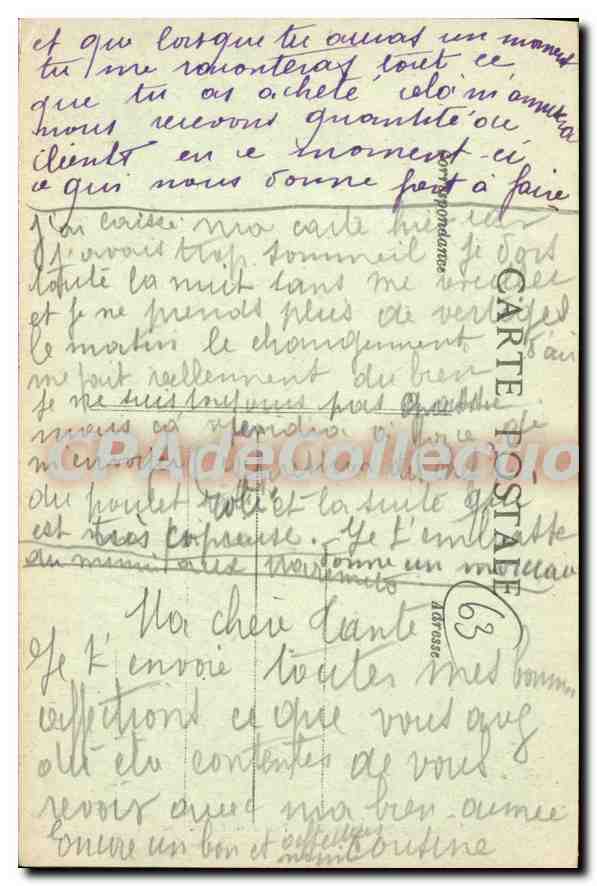 et que lorsque tu auras un moment
tu me raconteras tout ce
que tu as acheté cela m'amusera
nous recevons quantité de
clients en ce moment-ci
ce qui nous donne fort à faire
j'ai laissé ma carte hier soir
j'avais trop sommeil je dors
toute la nuit sans me
et je ne prends plus de vertiges
le matin le changement d'air
me fait réellement du bien
je ne suis toujours pas
mais ça viendra à force de
m'ennuyer
du poulet rôti et la suite qui
est très copieuse. Je t'embrasse
donne un morceau
Ma chère Tante
Je t'envoie toutes mes bonnes
affections ce que vous avez
dû être contentes de vous
revoir avec ma bien-aimée
cousine
Encore un bon et affectueux
CARTE POSTALE
Correspondance
Adresse
63
CPADeCollection